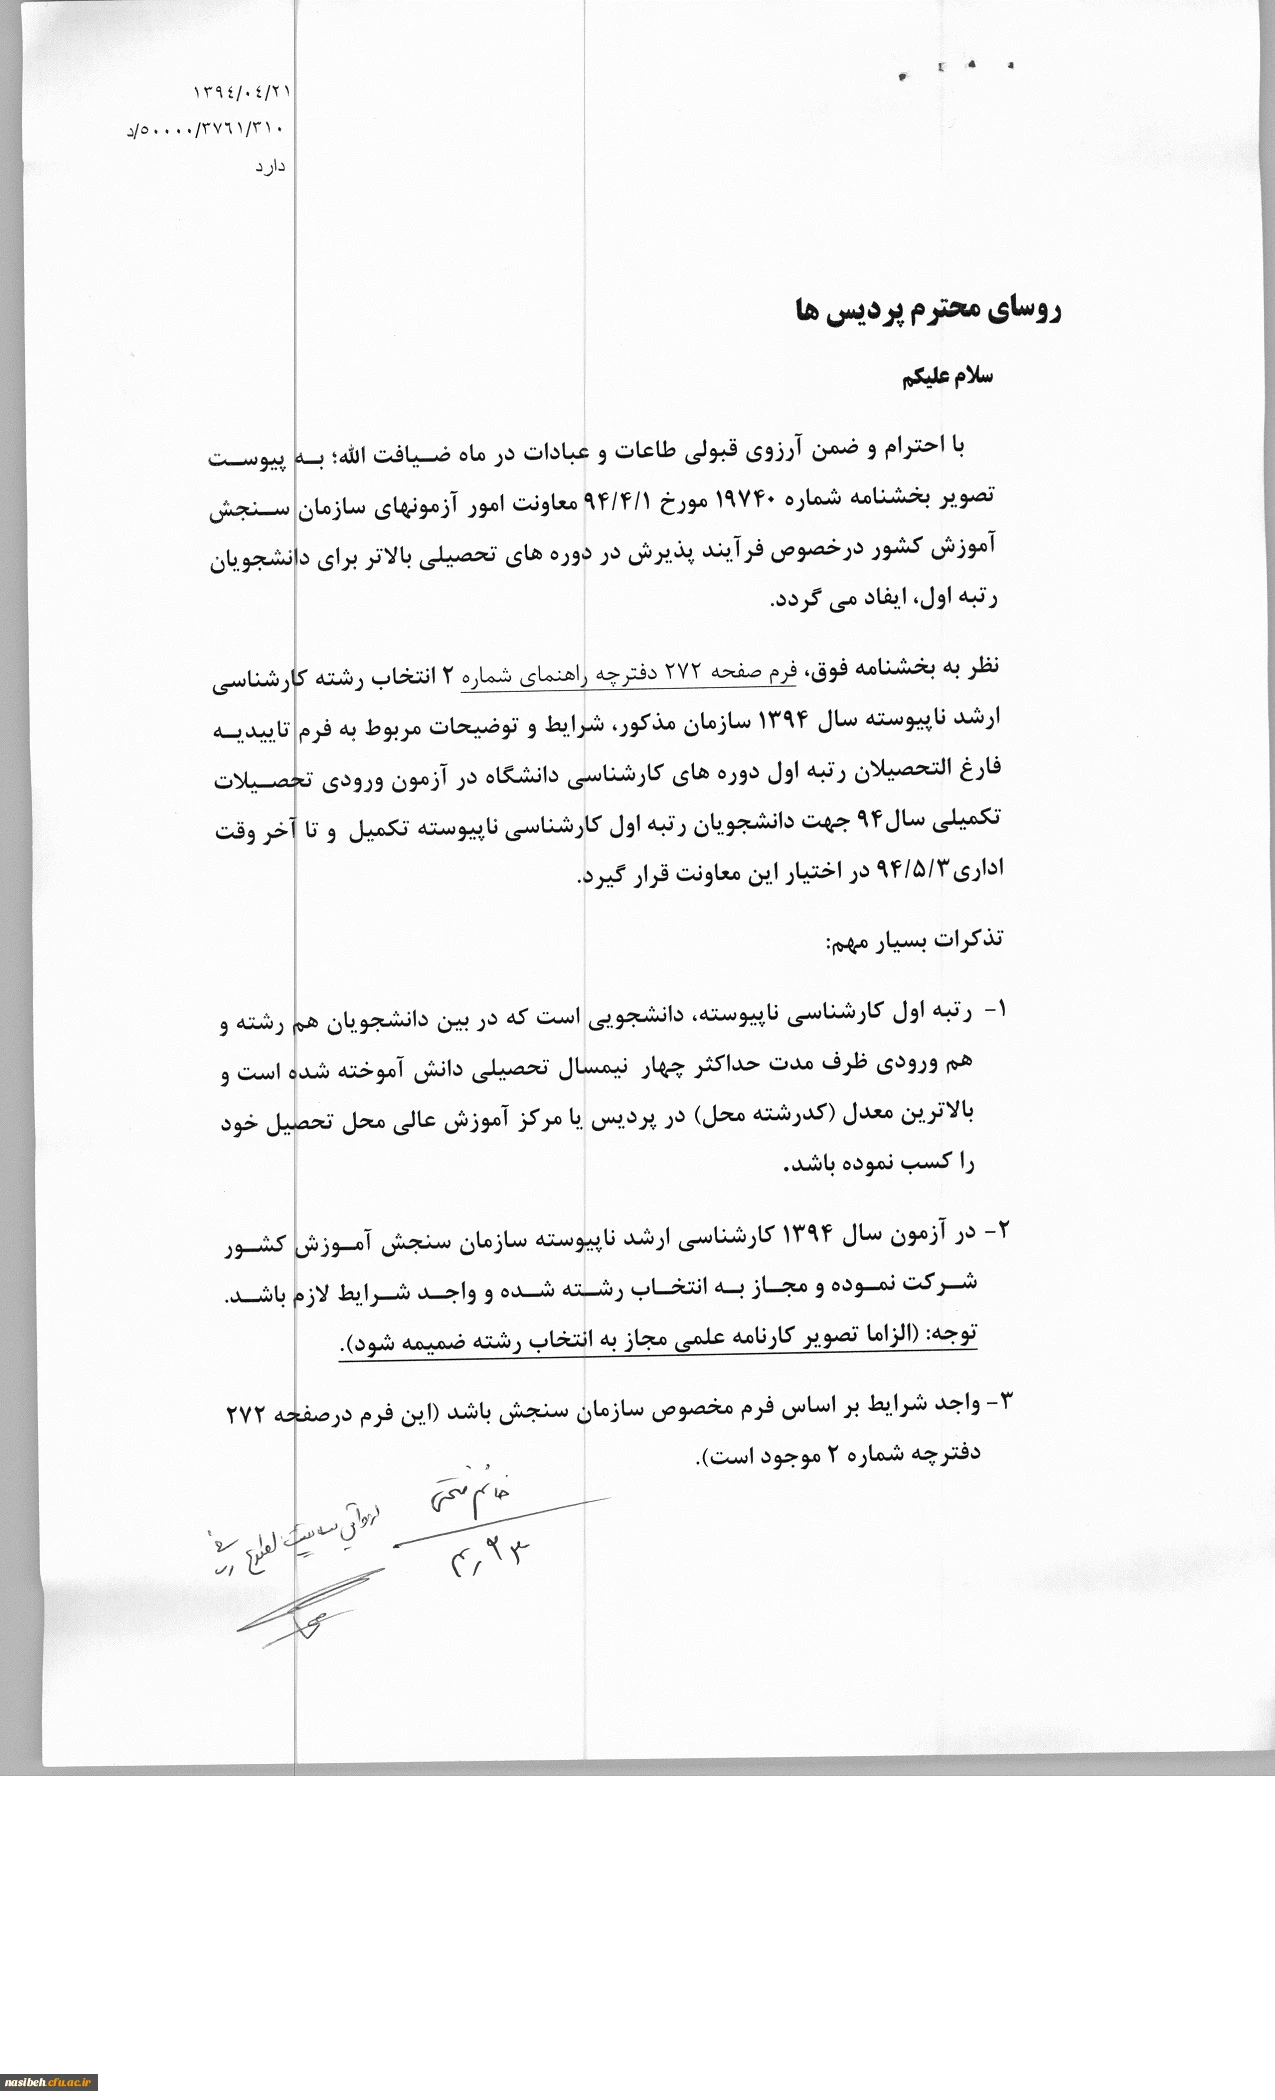 ۱۳۹٤/۰٤/۲۱
۵۰۰۰۰/۳۷٦۱/۳۱۰/د
دارد
روسای محترم پردیس ها
سلام علیکم
با احترام و ضمن آرزوی قبولی طاعات و عبادات در ماه ضیافت الله؛ به پیوست
تصویر بخشنامه شماره ۱۹۷۴۰ مورخ ۹۴/۴/۱ معاونت امور آزمونهای سازمان سنجش
آموزش کشور درخصوص فرآیند پذیرش در دوره های تحصیلی بالاتر برای دانشجویان
رتبه اول، ایفاد می گردد.
نظر به بخشنامه فوق، فرم صفحه ۲۷۲ دفترچه راهنمای شماره ۲ انتخاب رشته کارشناسی
ارشد ناپیوسته سال ۱۳۹۴ سازمان مذکور، شرایط و توضیحات مربوط به فرم تاییدیه
فارغ التحصیلان رتبه اول دوره های کارشناسی دانشگاه در آزمون ورودی تحصیلات
تکمیلی سال۹۴ جهت دانشجویان رتبه اول کارشناسی ناپیوسته تکمیل و تا آخر وقت
اداری۹۴/۵/۳ در اختیار این معاونت قرار گیرد.
تذکرات بسیار مهم:
۱- رتبه اول کارشناسی ناپیوسته، دانشجویی است که در بین دانشجویان هم رشته و
هم ورودی ظرف مدت حداکثر چهار نیمسال تحصیلی دانش آموخته شده است و
بالاترین معدل (کدرشته محل) در پردیس یا مرکز آموزش عالی محل تحصیل خود
را کسب نموده باشد.
۲- در آزمون سال ۱۳۹۴ کارشناسی ارشد ناپیوسته سازمان سنجش آموزش کشور
شرکت نموده و مجاز به انتخاب رشته شده و واجد شرایط لازم باشد.
توجه: (الزاما تصویر کارنامه علمی مجاز به انتخاب رشته ضمیمه شود).
۳- واجد شرایط بر اساس فرم مخصوص سازمان سنجش باشد (این فرم درصفحه ۲۷۲
دفترچه شماره ۲ موجود است).
nasibeh.cfu.ac.ir